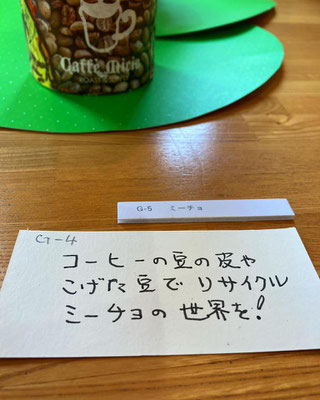 Caffè Micio
G-5 ミーチョ
G-4
コーヒーの豆の皮や
こげた豆で リサイクル
ミーチョの世界を!